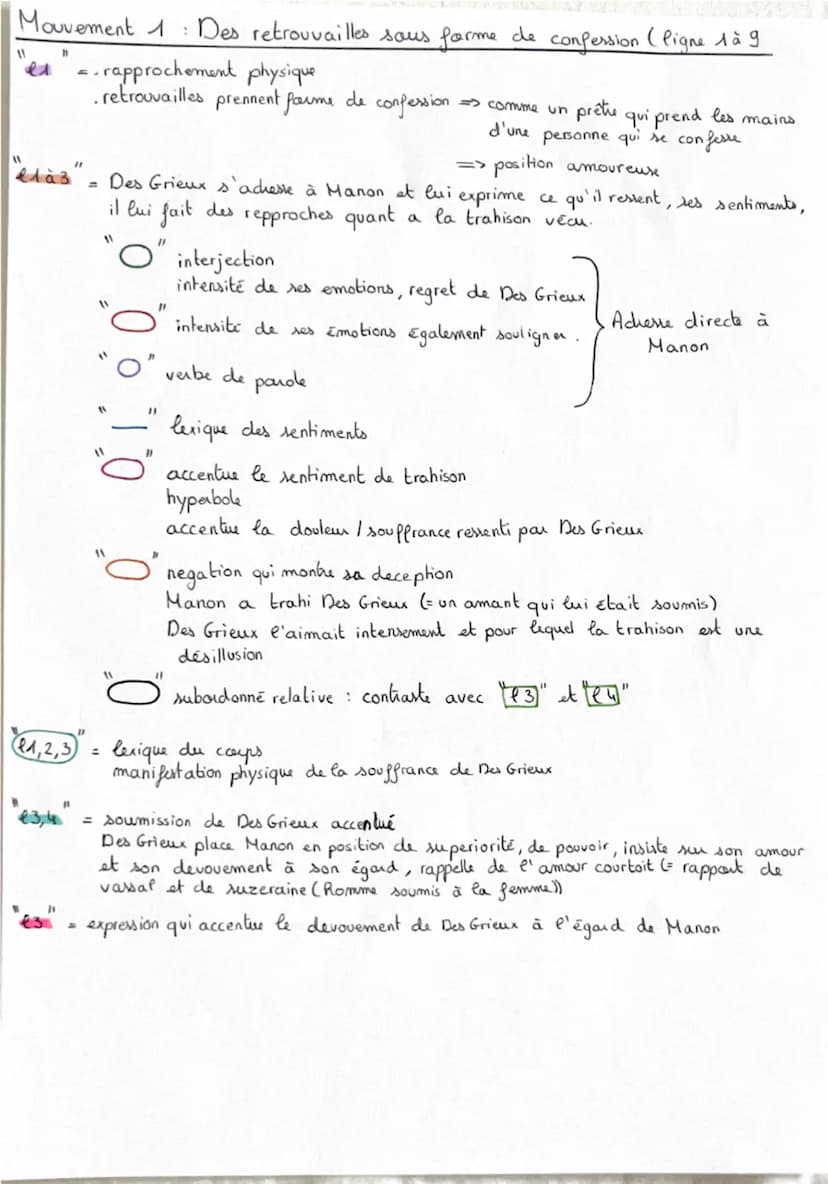 Mouvement 1 : Des retrouvailles sous forme de confession ( ligne 1 à 9
"l1" = . rapprochement physique
. retrouvailles prennent forme de confession => comme un prêtre qui prend les mains
d'une personne qui se confesse
=> position amoureuse
"l1 à 3" = Des Grieux s'adresse à Manon et lui exprime ce qu'il ressent, ses sentiments,
il lui fait des repproches quant a la trahison vécu.
" " interjection
intensité de ses emotions, regret de Des Grieux
" " intensité de ses émotions également souligner.
Adresse directe à
Manon
" " verbe de parole
" " lexique des sentiments
" " accentue le sentiment de trahison
hyperbole
accentue la douleur / souffrance ressenti par Des Grieux
" " negation qui montre sa deception
Manon a trahi Des Grieux (= un amant qui lui était soumis)
Des Grieux l'aimait intensement et pour lequel la trahison est une
désillusion
" " subordonné relative : contraste avec "l3" et "l4"
"l1,2,3" = lexique du corps
manifestation physique de la souffrance de Des Grieux
"l3,4" = soumission de Des Grieux accentué
Des Grieux place Manon en position de superiorité, de pouvoir, insiste sur son amour
et son devouement à son égard, rappelle de l'amour courtoit (= rapport de
vassal et de suzeraine (Homme soumis à la femme))
"l3" = expression qui accentue le devouement de Des Grieux à l'égard de Manon